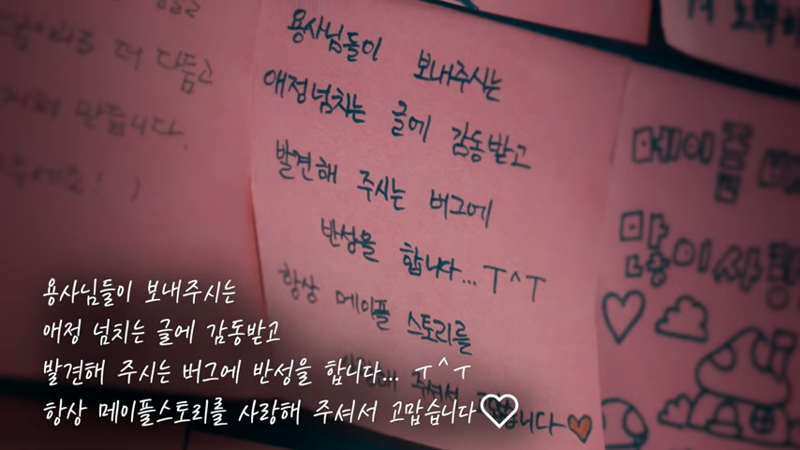 더 다듬고
만듭니다.
용사님들이 보내주시는
애정넘치는 글에 감동받고
발견해 주시는 버그에
반성을 합니다... ㅜ^ㅜ
항상 메이플 스토리를
주셔서
메이플
많이사랑
용사님들이 보내주시는
애정 넘치는 글에 감동받고
발견해 주시는 버그에 반성을 합니다... ㅜ^ㅜ
항상 메이플스토리를 사랑해 주셔서 고맙습니다♡